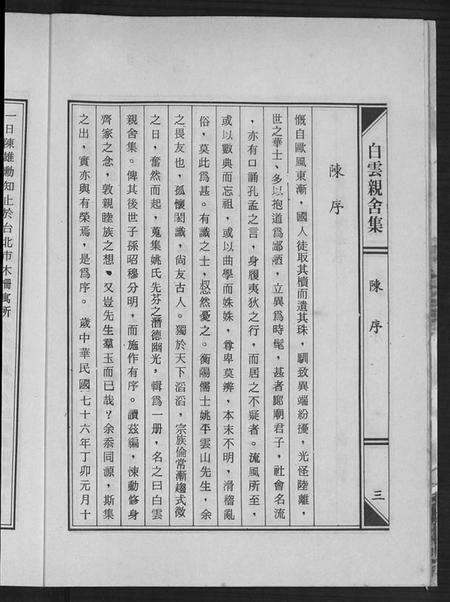 白雲親舍集
陳序
三
陳序
慨自歐風東漸，國人徒取其櫝而遺其珠，馴致異端紛擾，光怪陸離，
世之華士、多以抱道為鄙洒，立異為時髦，甚者郎廟君子，社會名流
，亦有口誦孔孟之言，身履夷狄之行，而居之不疑者。流風所至，
或以數典而忘祖，或以曲學而姝姝，尊卑莫辨，本末不明，滑稽亂
俗，莫此爲甚。有識之士，惄然憂之。衡陽儒士姚平雲山先生，余
之畏友也，孤懷閎識，尚友古人。獨於天下滔滔，宗族倫常漸趨式微
之日，奮然而起，蒐集姚氏先芬之潛德幽光，輯爲一册，名之曰白雲
親舍集。俾其後世子孫昭穆分明，而施作有序。讀茲編，悚動修身
齊家之念，敦親睦族之想，又豈先生羣玉而已哉？余忝同謜，斯集
之出，實亦與有榮焉，是爲序。 歲中華民國七十六年丁卯元月十
一日陳雄勳知止於台北市木柵寓所